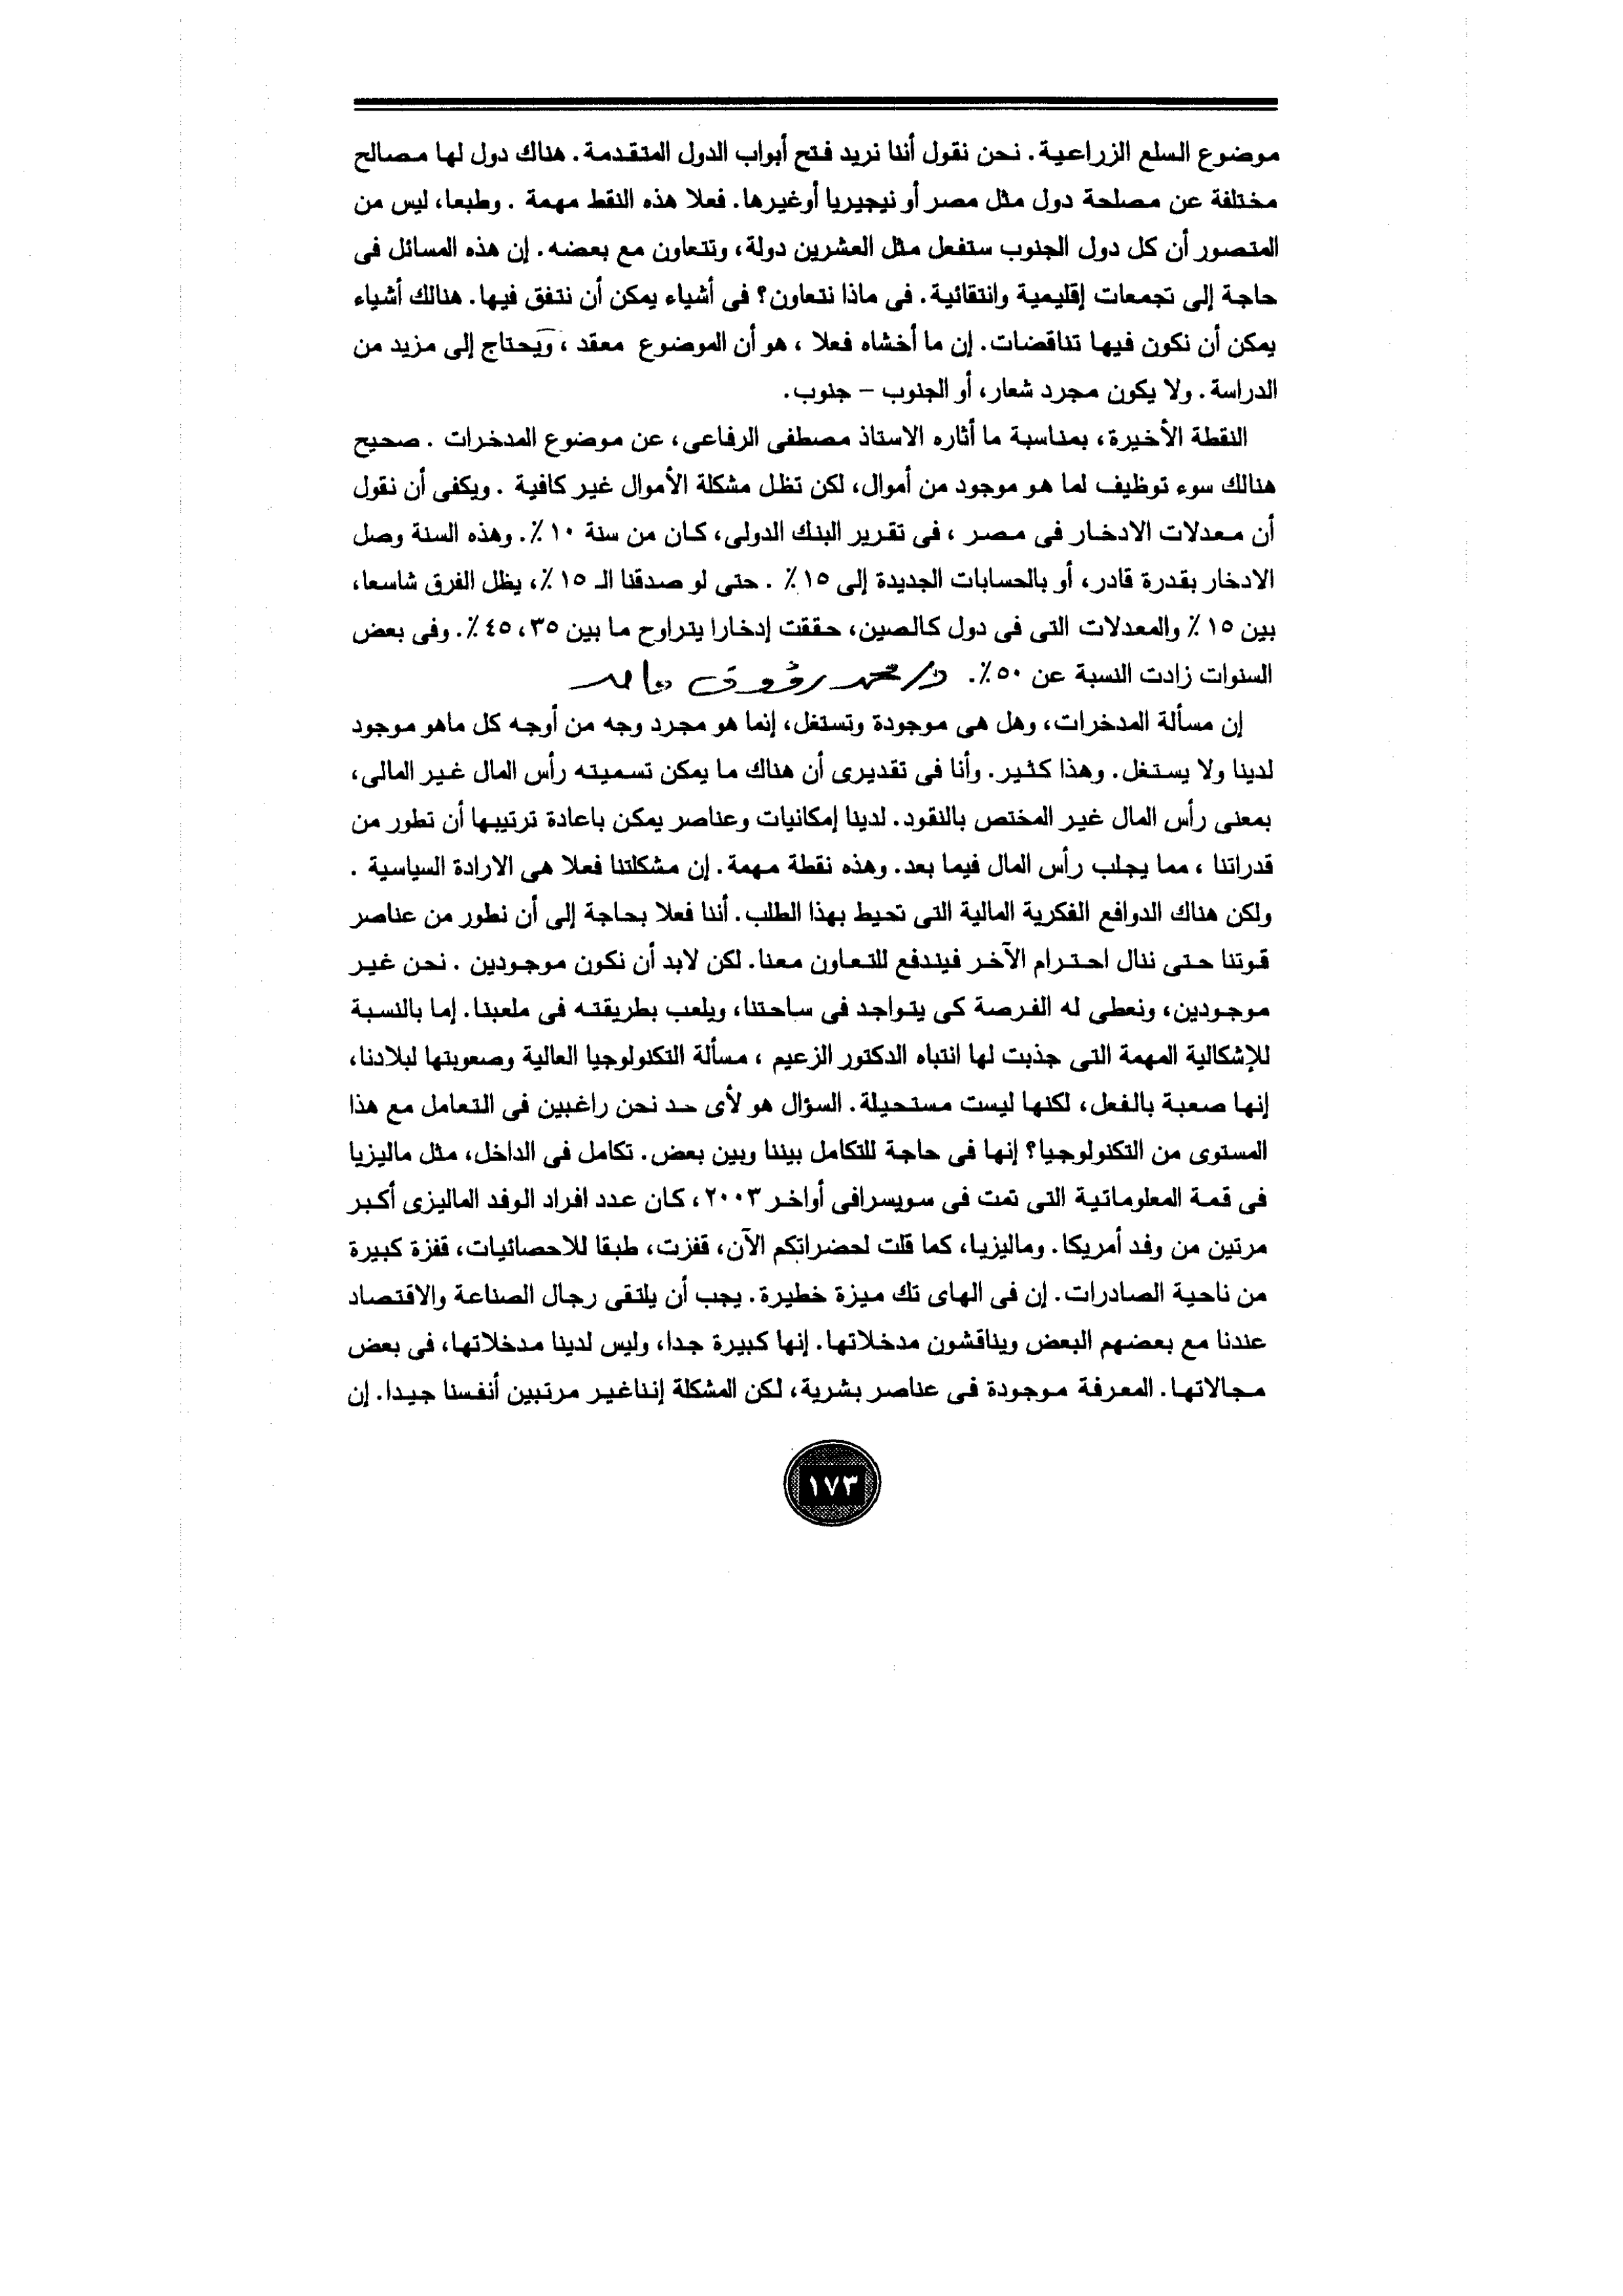 موضوع السلع الزراعية. نحن نقول أننا نريد فتح أبواب الدول المتقدمة. هناك دول لها مصالح
مختلفة عن مصلحة دول مثل مصر أو نيجيريا أوغيرها. فعلا هذه النقط مهمة . وطبعا، ليس من
المتصور أن كل دول الجنوب ستفعل مثل العشرين دولة، وتتعاون مع بعضه. إن هذه المسائل فى
حاجة إلى تجمعات إقليمية وانتقائية. فى ماذا نتعاون؟ فى أشياء يمكن أن نتفق فيها. هنالك أشياء
يمكن أن نكون فيها تناقضات. إن ما أخشاه فعلا ، هو أن الموضوع معقد ، ويحتاج إلى مزيد من
الدراسة. ولا يكون مجرد شعار، أو الجنوب – جنوب.
النقطة الأخيرة، بمناسبة ما أثاره الاستاذ مصطفى الرفاعى، عن موضوع المدخرات . صحيح
هنالك سوء توظيف لما هو موجود من أموال، لكن تظل مشكلة الأموال غير كافية . ويكفى أن نقول
أن معدلات الادخار فى مصر ، فى تقرير البنك الدولى، كان من سنة ١٠ ٪. وهذه السنة وصل
الادخار بقدرة قادر، أو بالحسابات الجديدة إلى ١٥ ٪ . حتى لو صدقنا الـ ١٥ ٪، يظل الفرق شاسعا،
بين ١٥ ٪ والمعدلات التى فى دول كالصين، حققت إدخارا يتراوح ما بين ٣٥، ٤٥ ٪. وفى بعض
السنوات زادت النسبة عن ٥٠ ٪. د/ محمد رؤوف حامد
إن مسألة المدخرات، وهل هى موجودة وتستغل، إنما هو مجرد وجه من أوجه كل ماهو موجود
لدينا ولا يستغل. وهذا كثير. وأنا فى تقديرى أن هناك ما يمكن تسميته رأس المال غير المالى،
بمعنى رأس المال غير المختص بالنقود. لدينا إمكانيات وعناصر يمكن باعادة ترتيبها أن تطور من
قدراتنا ، مما يجلب رأس المال فيما بعد. وهذه نقطة مهمة. إن مشكلتنا فعلا هى الارادة السياسية .
ولكن هناك الدوافع الفكرية المالية التى تحيط بهذا الطلب. أننا فعلا بحاجة إلى أن نطور من عناصر
قوتنا حتى ننال احترام الآخر فيندفع للتعاون معنا. لكن لابد أن نكون موجودين . نحن غير
موجودين، ونعطى له الفرصة كى يتواجد فى ساحتنا، ويلعب بطريقته فى ملعبنا. إما بالنسبة
للإشكالية المهمة التى جذبت لها انتباه الدكتور الزعيم ، مسألة التكنولوجيا العالية وصعوبتها لبلادنا،
إنها صعبة بالفعل، لكنها ليست مستحيلة. السؤال هو لأى حد نحن راغبين فى التعامل مع هذا
المستوى من التكنولوجيا؟ إنها فى حاجة للتكامل بيننا وبين بعض. تكامل فى الداخل، مثل ماليزيا
فى قمة المعلوماتية التى تمت فى سويسرافى أواخر ٢٠٠٣، كان عدد افراد الوفد الماليزى أكبر
مرتين من وفد أمريكا. وماليزيا، كما قلت لحضراتكم الآن، قفزت، طبقا للاحصائيات، قفزة كبيرة
من ناحية الصادرات. إن فى الهاى تك ميزة خطيرة. يجب أن يلتقى رجال الصناعة والاقتصاد
عندنا مع بعضهم البعض ويناقشون مدخلاتها. إنها كبيرة جدا، وليس لدينا مدخلاتها، فى بعض
مجالاتها. المعرفة موجودة فى عناصر بشرية، لكن المشكلة إنناغير مرتبين أنفسنا جيدا. إن
١٧٣